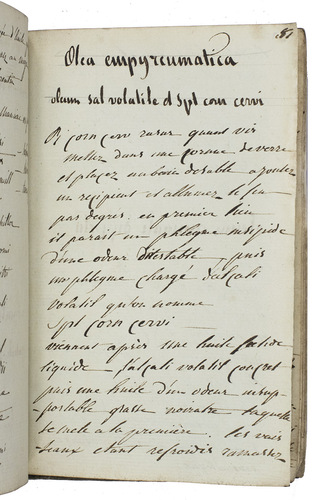 81
Olea empyreumatica
oleum sal volatile et Spt corn cervi
℞ corn cervi rasur quant vis
mettez dans une cornue de verre
et placez au bain de sable ajoutez
un recipient et allumez le feu
par degres. en premier lieu
il parait un phlegme insipide
d'une odeur detestable, puis
un phlegme chargé d'alcali
volatil qu'on nomme
Spt corn cervi
viennent apres une huile foetide
liquide l'alcali volatil concret
puis une huile d'un odeur insup-
portable grasse noiratre laquelle
se mele a la premiere. les vais
seaux etant refroidis ramassez